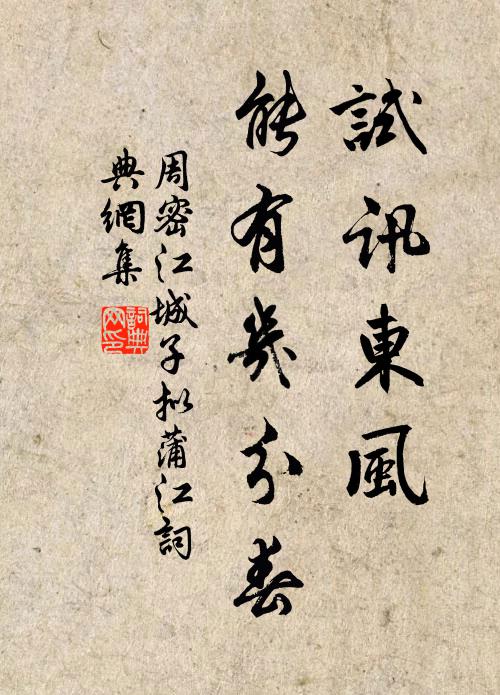 試訊東風
能有幾分春
周密江城子拟蒲江詞
典網集
詞典
网印